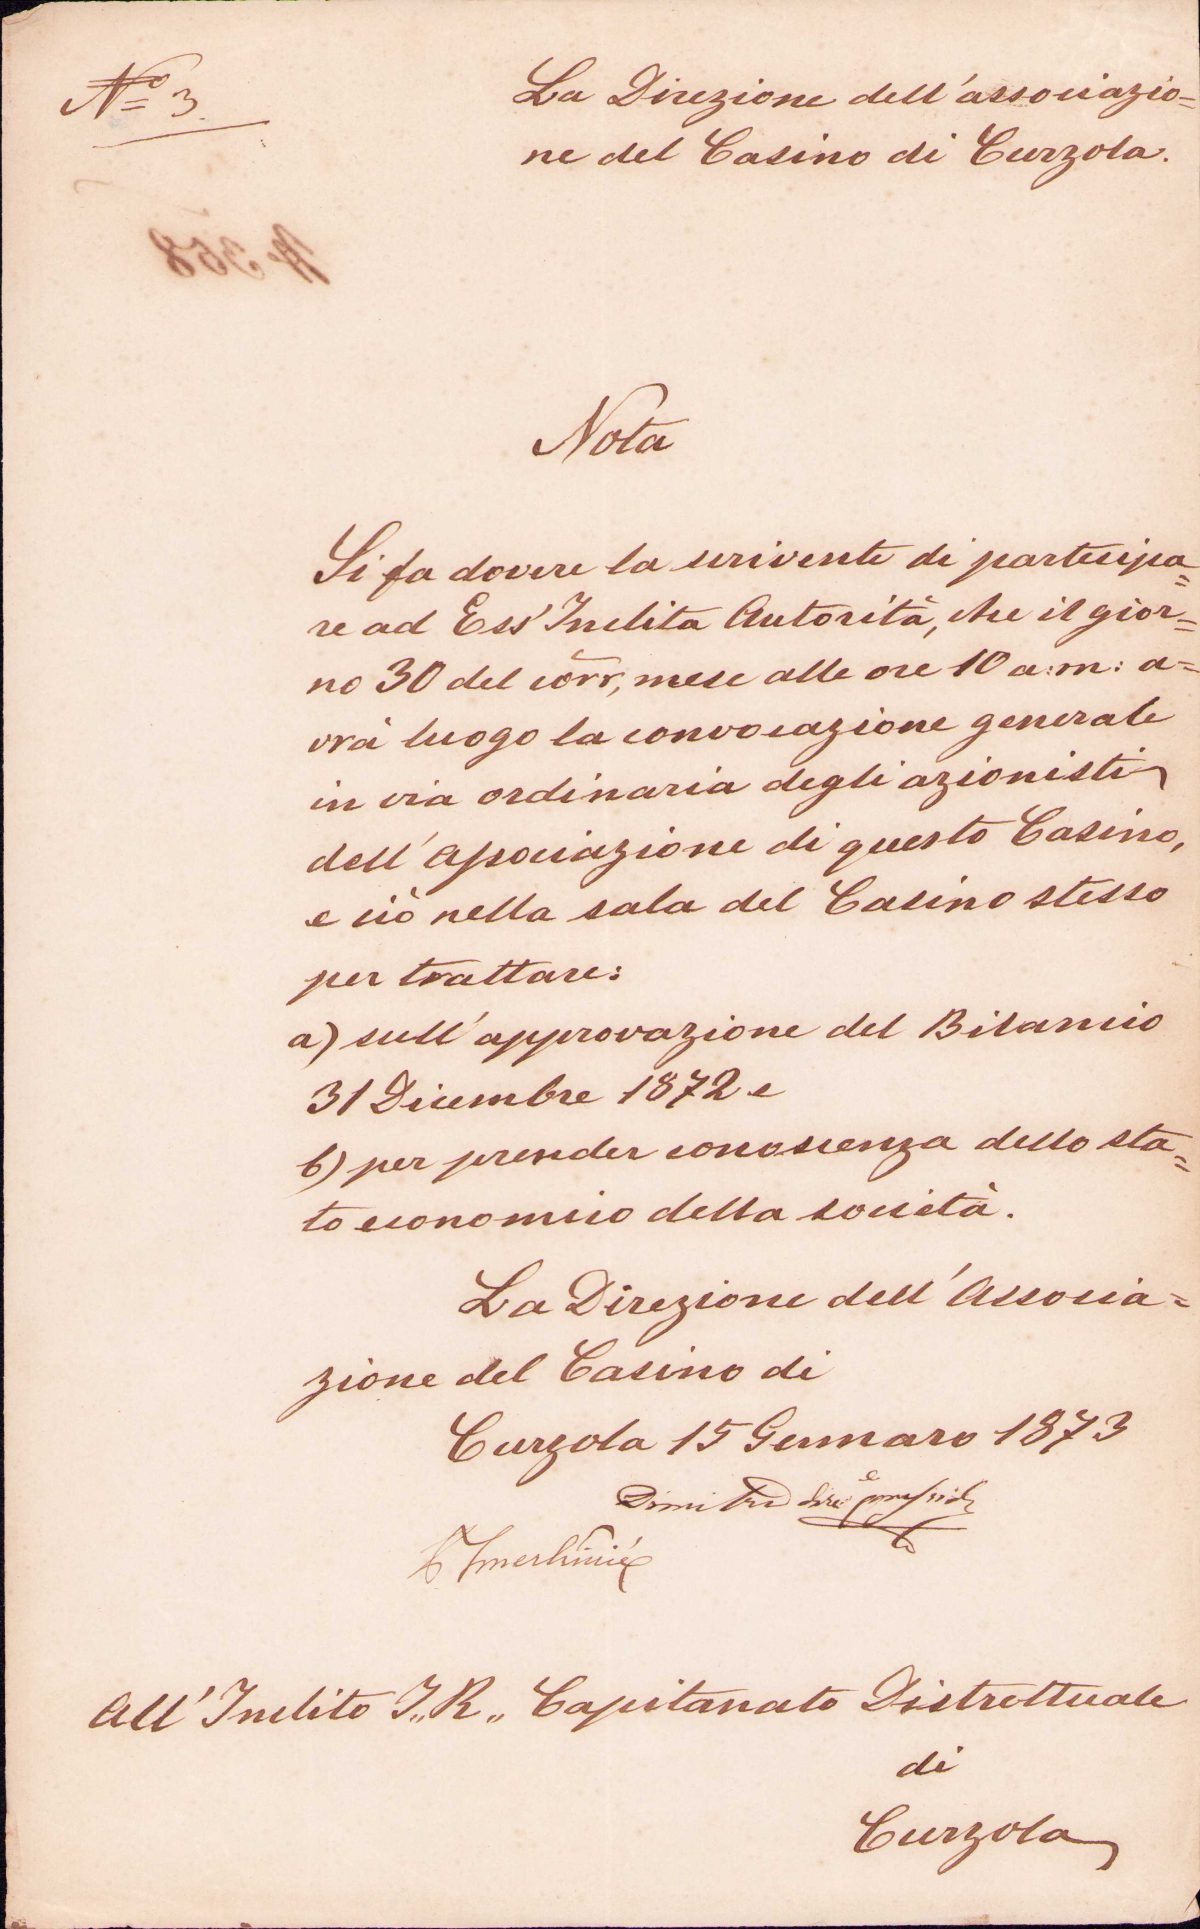 Nº 3
La Direzione dell'associazio=
ne del Casino di Curzola.
Nº 368
Nota
Si fa dovere la scrivente di partecipa=
re ad Ess' Inclita Autorità, che il gior=
no 30 del corr, mese alle ore 10 a:m: a=
vrà luogo la convocazione generale
in via ordinaria degli azionisti
dell'Associazione di questo Casino,
e ciò nella sala del Casino stesso
per trattare:
a) sull'approvazione del Bilancio
31 Dicembre 1872 e
b) per prender conoscenza dello sta=
to economico della società.
La Direzione dell'Associa=
zione del Casino di
Curzola 15 Gennaro 1873
Dimitri
All'Inclito I.. R.. Capitanato Distrettuale
di
Curzola